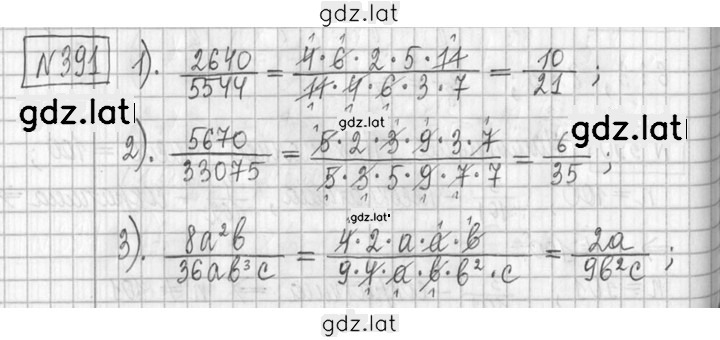 gdz.lat
№391 1). 2640/5544 = 4·6·2·5·11/11·4·6·3·7 = 10/21 ;
gdz.lat
gdz.lat
gdz.lat
2). 5670/33075 = 5·2·3·9·3·7/5·3·5·9·7·7 = 6/35 ;
gdz.lat
3). 8a²b/36ab³c = 4·2·a·a·b/9·4·a·b·b²·c = 2a/9b²c ;
gdz.lat